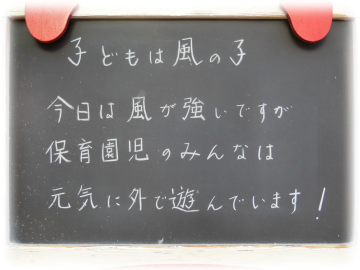 子どもは風の子
今日は風が強いですが
保育園児のみんなは
元気に外で遊んでいます!